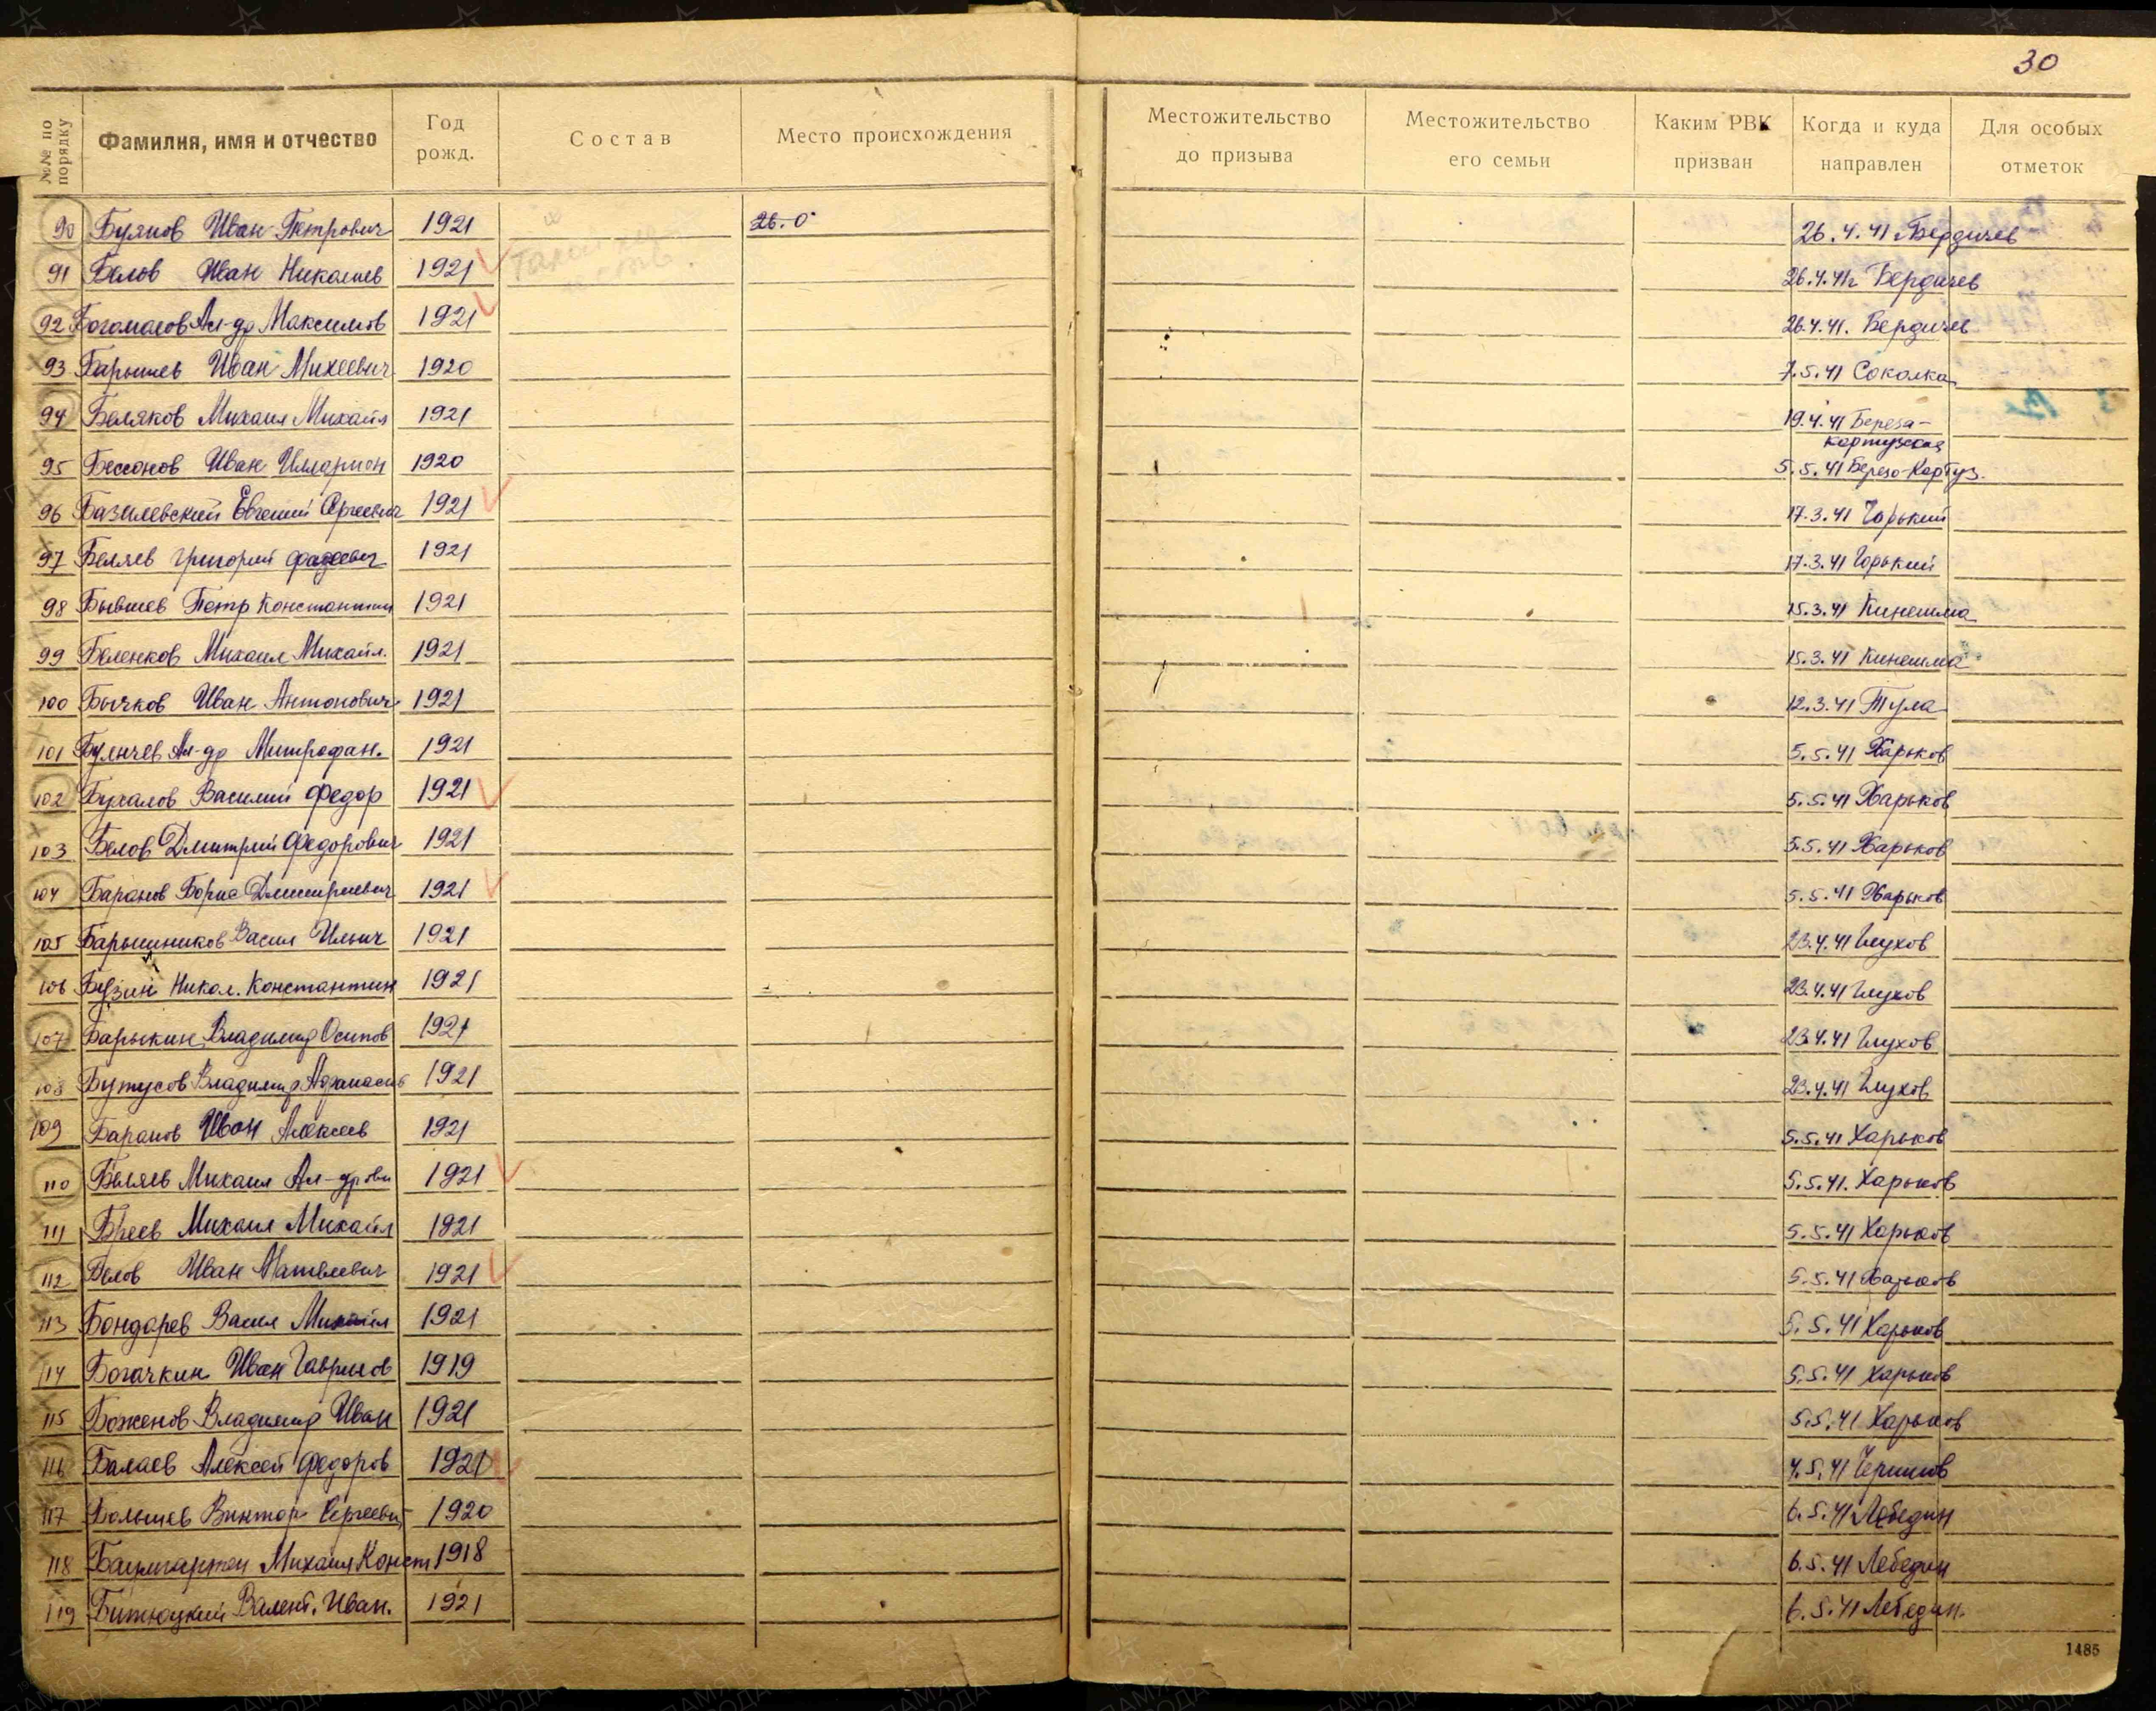 30
№№ по порядку Фамилия, имя и отчество Год рожд. Состав Место происхождения Местожительство до призыва Местожительство его семьи Каким РВК призван Когда и куда направлен Для особых отметок
90 Буянов Иван Петрович 1921 26.0 26.4.41 Бердичев
91 Белов Иван Николаев 1921 26.4.41г Бердичев
92 Богомолов Ал-др Максимов 1921 26.4.41. Бердичев
93 Барышев Иван Михеевич 1920 7.5.41 Соколка
94 Беляков Михаил Михайл 1921 19.4.41 Береза-
картузская
95 Бессонов Иван Илларион 1920 5.5.41 Березо-Картуз.
96 Базилевский Евгений Сергеевич 1921 17.3.41 Горький
97 Беляев Григорий Фадеевич 1921 17.3.41 Горький
98 Бывшев Петр Константин 1921 15.3.41 Кинешма
99 Беленков Михаил Михайл. 1921 15.3.41 Кинешма
100 Бычков Иван Антонович 1921 12.3.41 Тула
101 Ал-др Митрофан. 1921 5.5.41 Харьков
102 Букалов Василий Федор 1921 5.5.41 Харьков
103 Белов Дмитрий Федорович 1921 5.5.41 Харьков
104 Баранов Борис Дмитриевич 1921 5.5.41 Харьков
105 Барышников Васил Ильич 1921 23.4.41 Глухов
106 Бузин Никол. Константин 1921 23.4.41 Глухов
107 Барыкин Владимир Осипов 1921 23.4.41 Глухов
108 Бутусов Владимир Афанасьев 1921 23.4.41 Глухов
109 Баранов Иван Алексеев 1921 5.5.41 Харьков
110 Беляев Михаил Ал-дрови 1921 5.5.41. Харьков
111 Бреев Михаил Михайл 1921 5.5.41 Харьков
112 Белов Иван Матвеевич 1921 5.5.41 Харьков
113 Бондарев Васил Михайл 1921 5.5.41 Харьков
114 Богачкин Иван Гаврилов 1919 5.5.41 Харьков
115 Боженов Владимир Иван 1921 5.5.41 Харьков
116 Балаев Алексей Федоров 1921 4.5.41 Чернигов
117 Виктор Сергеевич 1920 6.5.41 Лебедин
118 Баумгартен Михаил Конст 1918 6.5.41 Лебедин
119 Битюцкий Валент. Иван. 1921 6.5.41 Лебедин.
1485